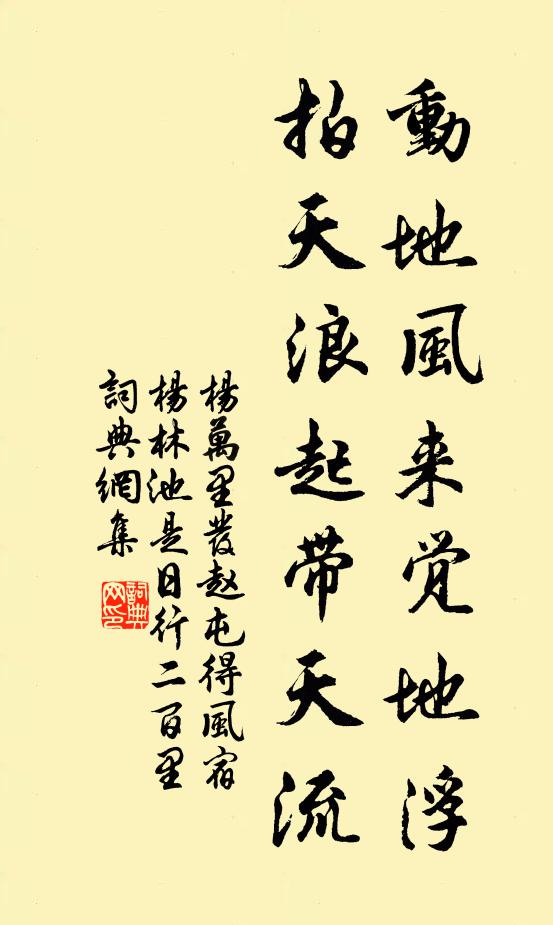 動地風来觉地浮
拍天浪起帶天流
楊萬里發赵屯得風宿
楊林池是日行二百里
詞典網集
詞典网印